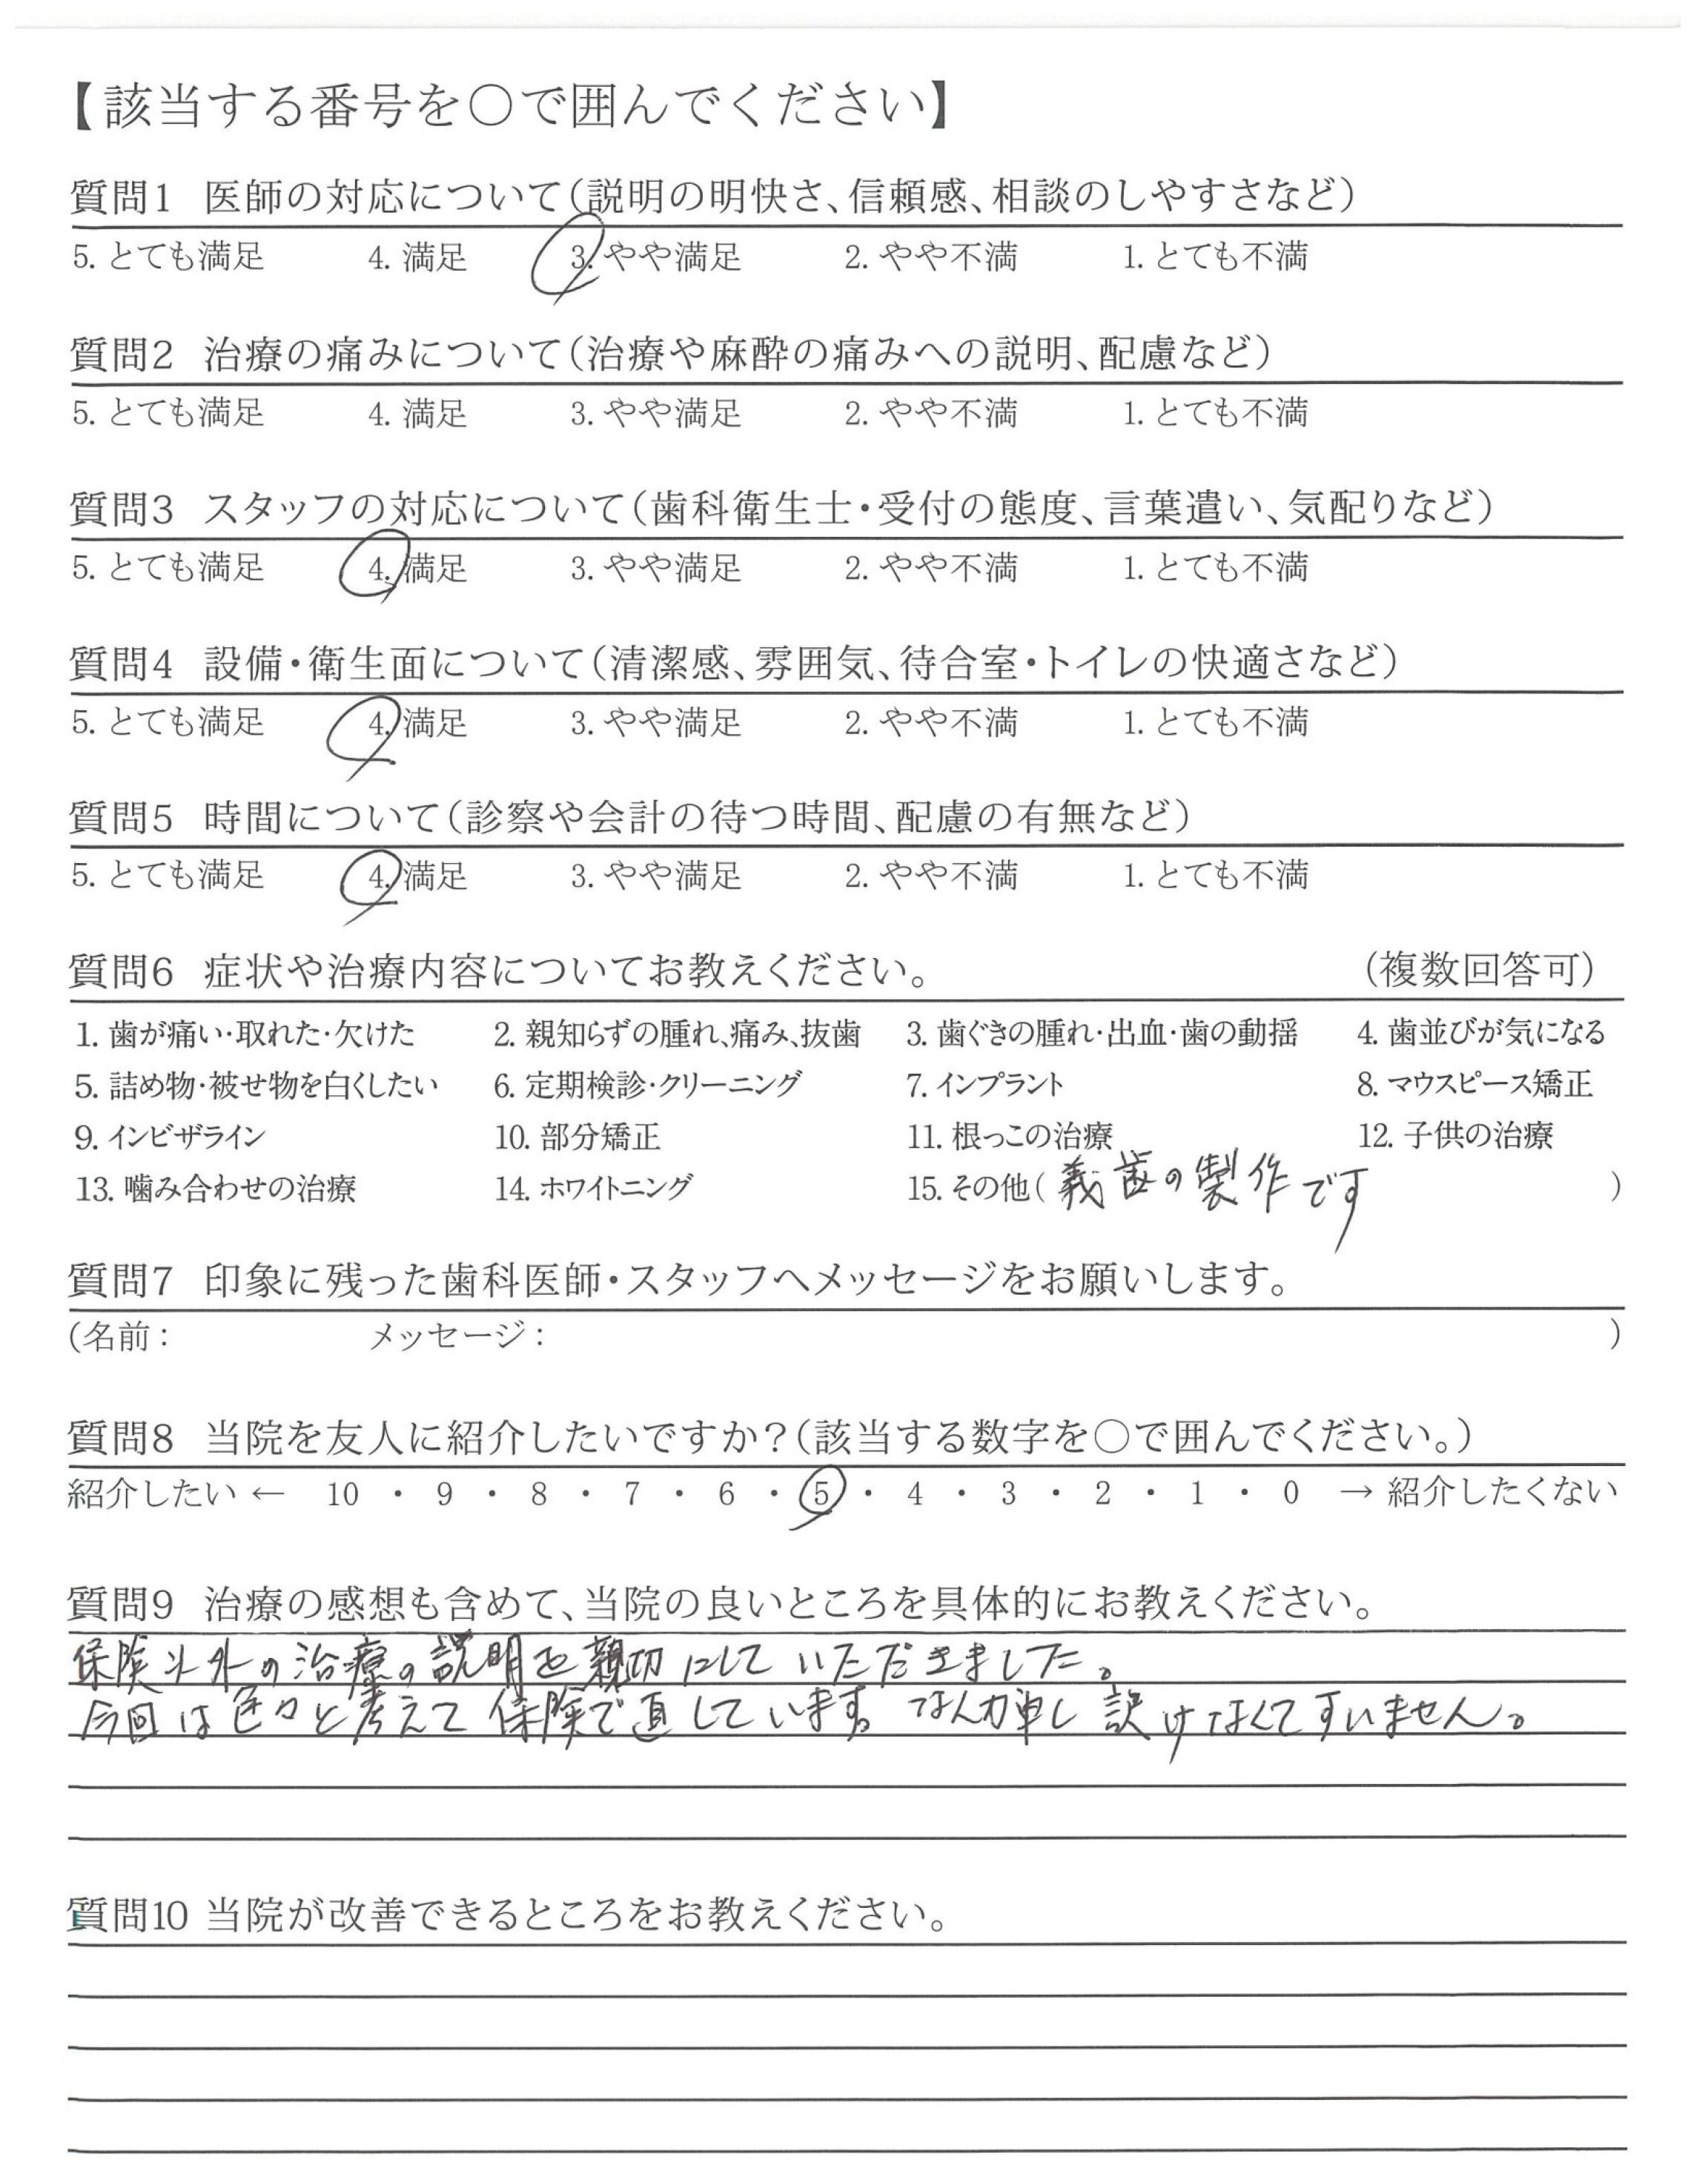 【該当する番号を○で囲んでください】
質問1 医師の対応について（説明の明快さ、信頼感、相談のしやすさなど）
5. とても満足 4. 満足 3. やや満足 2. やや不満 1. とても不満
質問2 治療の痛みについて（治療や麻酔の痛みへの説明、配慮など）
5. とても満足 4. 満足 3. やや満足 2. やや不満 1. とても不満
質問3 スタッフの対応について（歯科衛生士・受付の態度、言葉遣い、気配りなど）
5. とても満足 4. 満足 3. やや満足 2. やや不満 1. とても不満
質問4 設備・衛生面について（清潔感、雰囲気、待合室・トイレの快適さなど）
5. とても満足 4. 満足 3. やや満足 2. やや不満 1. とても不満
質問5 時間について（診察や会計の待つ時間、配慮の有無など）
5. とても満足 4. 満足 3. やや満足 2. やや不満 1. とても不満
質問6 症状や治療内容についてお教えください。 （複数回答可）
1. 歯が痛い・取れた・欠けた 2. 親知らずの腫れ、痛み、抜歯 3. 歯ぐきの腫れ・出血・歯の動揺 4. 歯並びが気になる
5. 詰め物・被せ物を白くしたい 6. 定期検診・クリーニング 7. インプラント 8. マウスピース矯正
9. インビザライン 10. 部分矯正 11. 根っこの治療 12. 子供の治療
13. 噛み合わせの治療 14. ホワイトニング 15. その他（ 義歯の製作です ）
質問7 印象に残った歯科医師・スタッフへメッセージをお願いします。
（名前： メッセージ： ）
質問8 当院を友人に紹介したいですか？（該当する数字を○で囲んでください。）
紹介したい ← 10 ・ 9 ・ 8 ・ 7 ・ 6 ・ 5 ・ 4 ・ 3 ・ 2 ・ 1 ・ 0 → 紹介したくない
質問9 治療の感想も含めて、当院の良いところを具体的にお教えください。
保険以外の治療の説明を親切にしていただきました。
今回は色々と考えて保険で直しています。なんか申し訳けなくてすいません。
質問10 当院が改善できるところをお教えください。